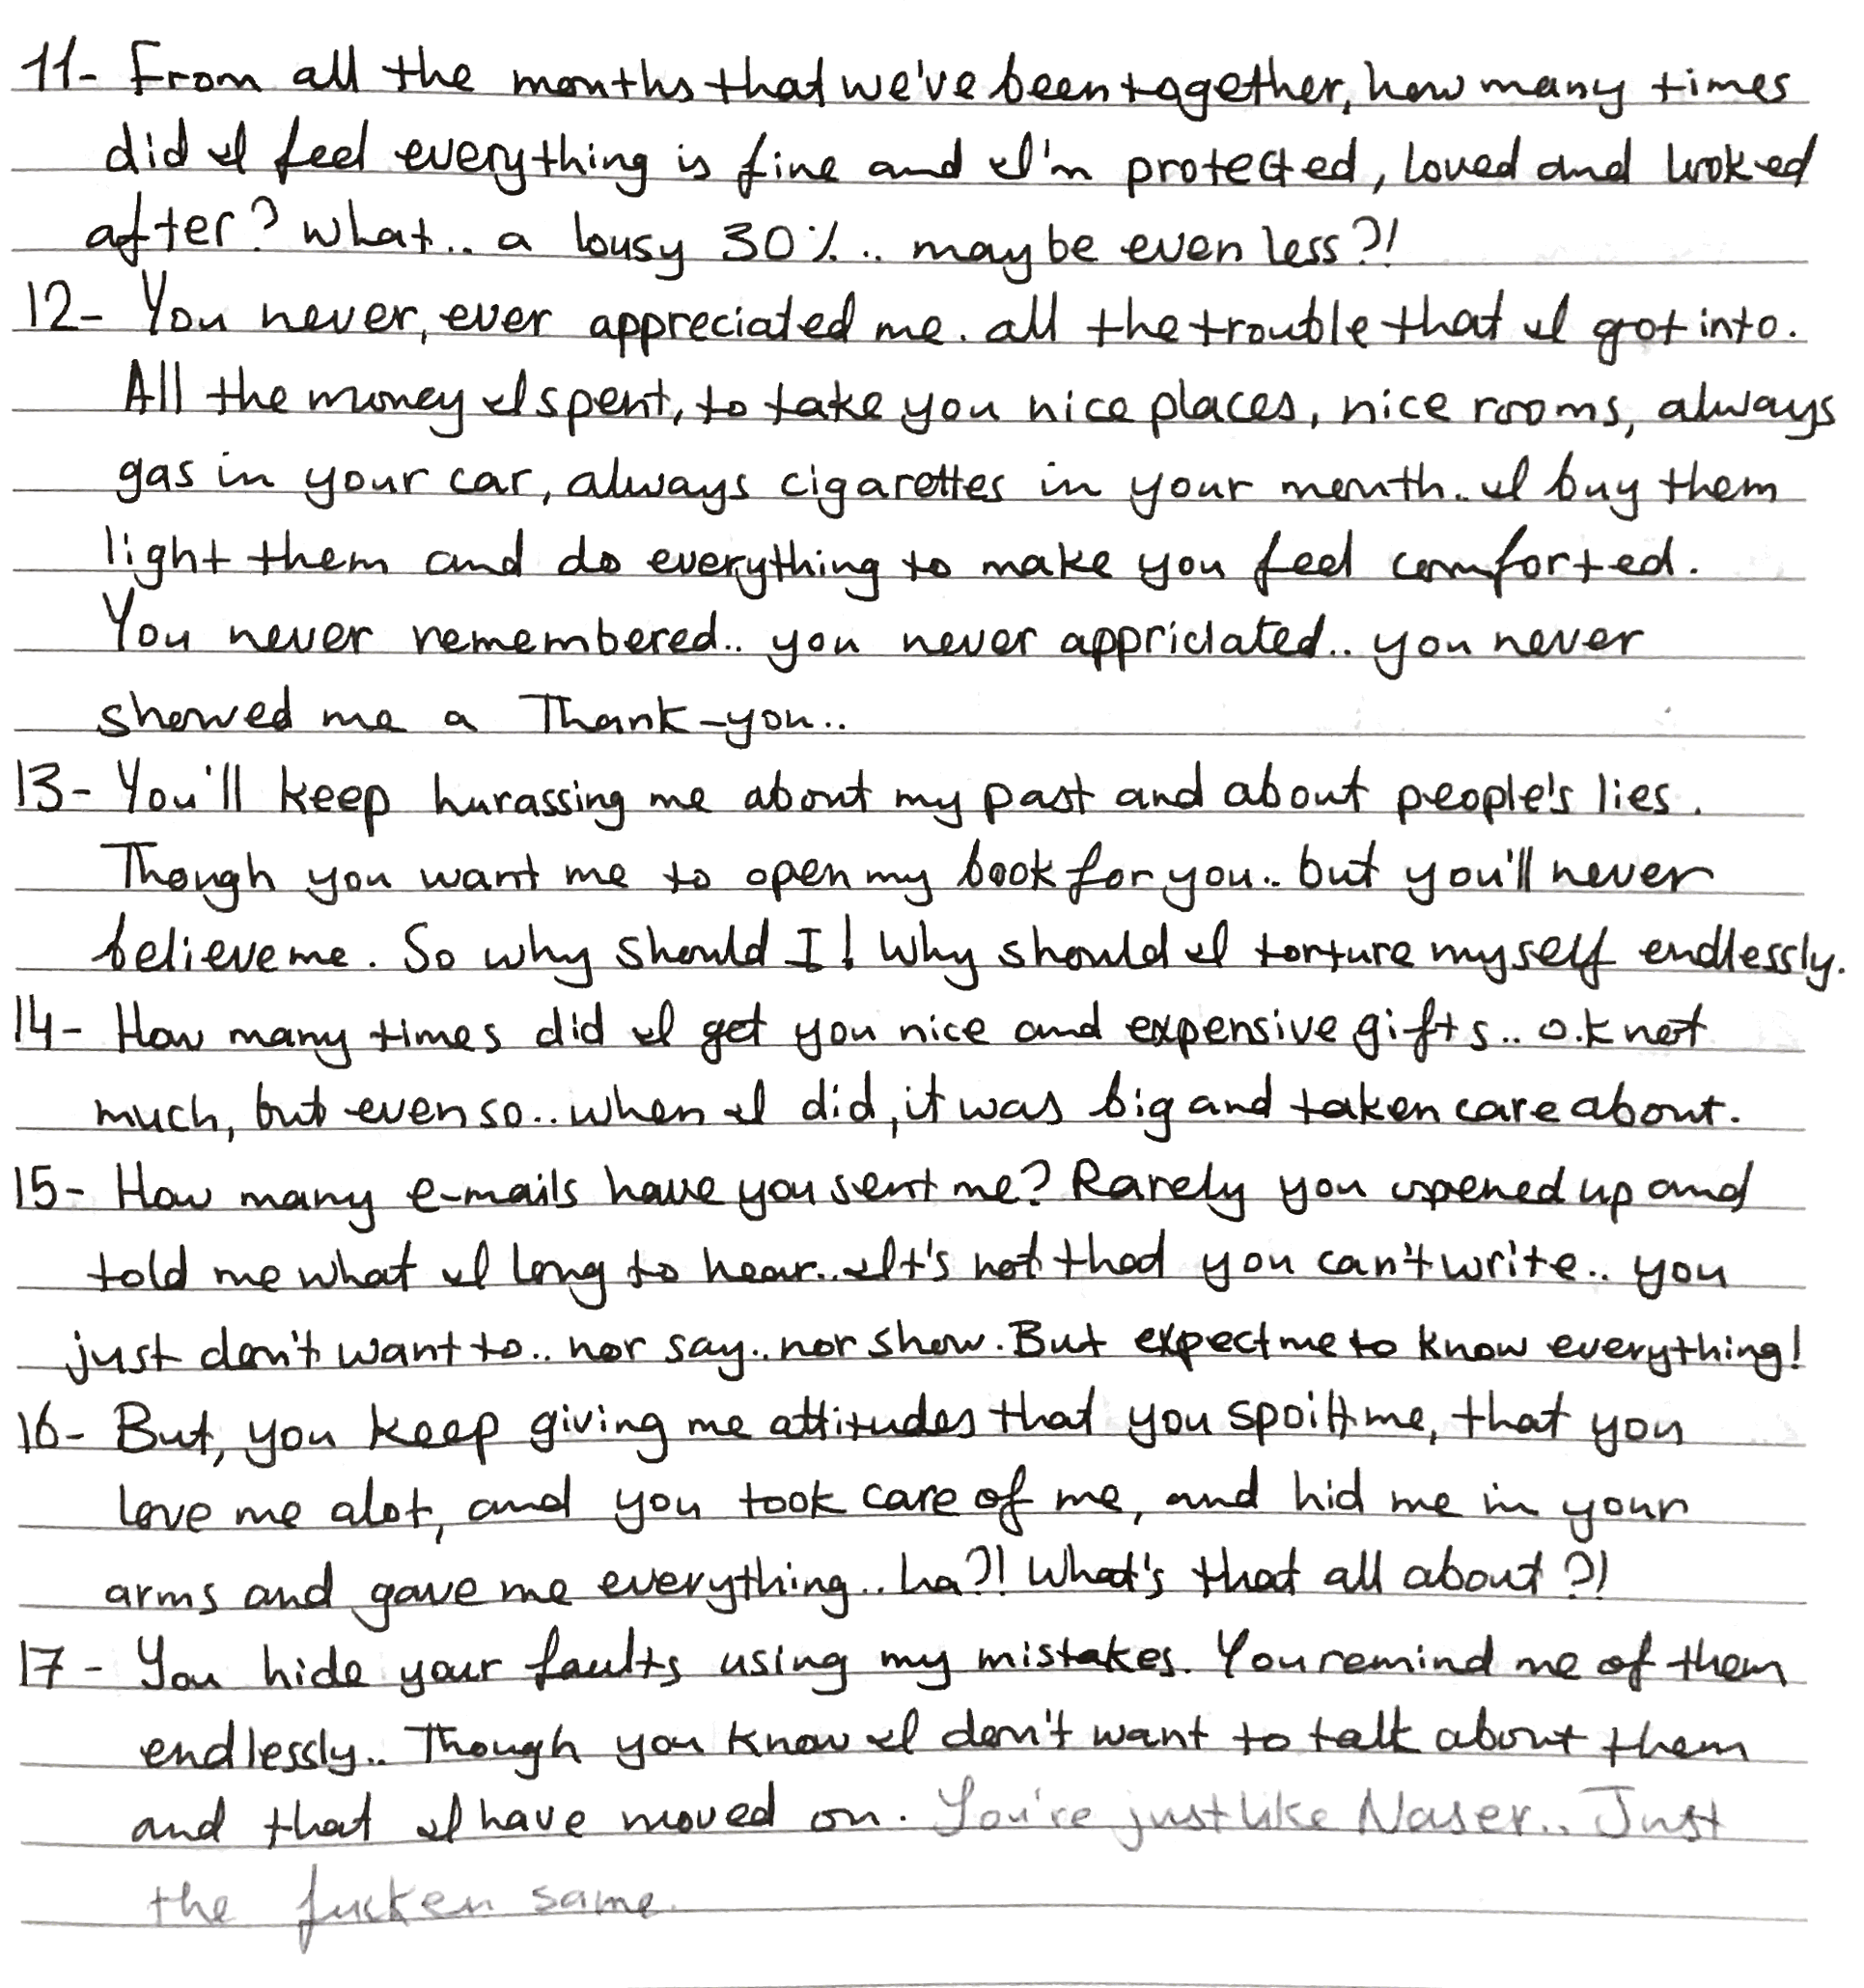 11- From all the months that we've been together, how many times
did I feel everything is fine and I'm protected, loved and looked
after? what.. a lousy 30%.. maybe even less?!
12- You never, ever appreciated me. all the trouble that I got into.
All the money I spent, to take you nice places, nice rooms, always
gas in your car, always cigarettes in your mouth.. I buy them
light them and do everything to make you feel comforted.
You never remembered.. you never appriciated.. you never
showed me a Thank-you..
13- You'll keep hurassing me about my past and about people's lies.
Though you want me to open my book for you.. but you'll never
believe me. So why should I! Why should I torture myself endlessly.
14- How many times did I get you nice and expensive gifts.. o.k not
much, but even so.. when I did, it was big and taken care about.
15- How many e-mails have you sent me? Rarely you opened up and
told me what I long to hear.. It's not that you can't write.. you
just don't want to.. nor say.. nor show. But expect me to know everything!
16- But, you keep giving me attitudes that you spoilt me, that you
love me alot, and you took care of me, and hid me in your
arms and gave me everything.. ha?! What's that all about?!
17- You hide your faults using my mistakes. You remind me of them
endlessly.. Though you know I don't want to talk about them
and that I have moved on. You're just like Naser.. Just
the fucken same.